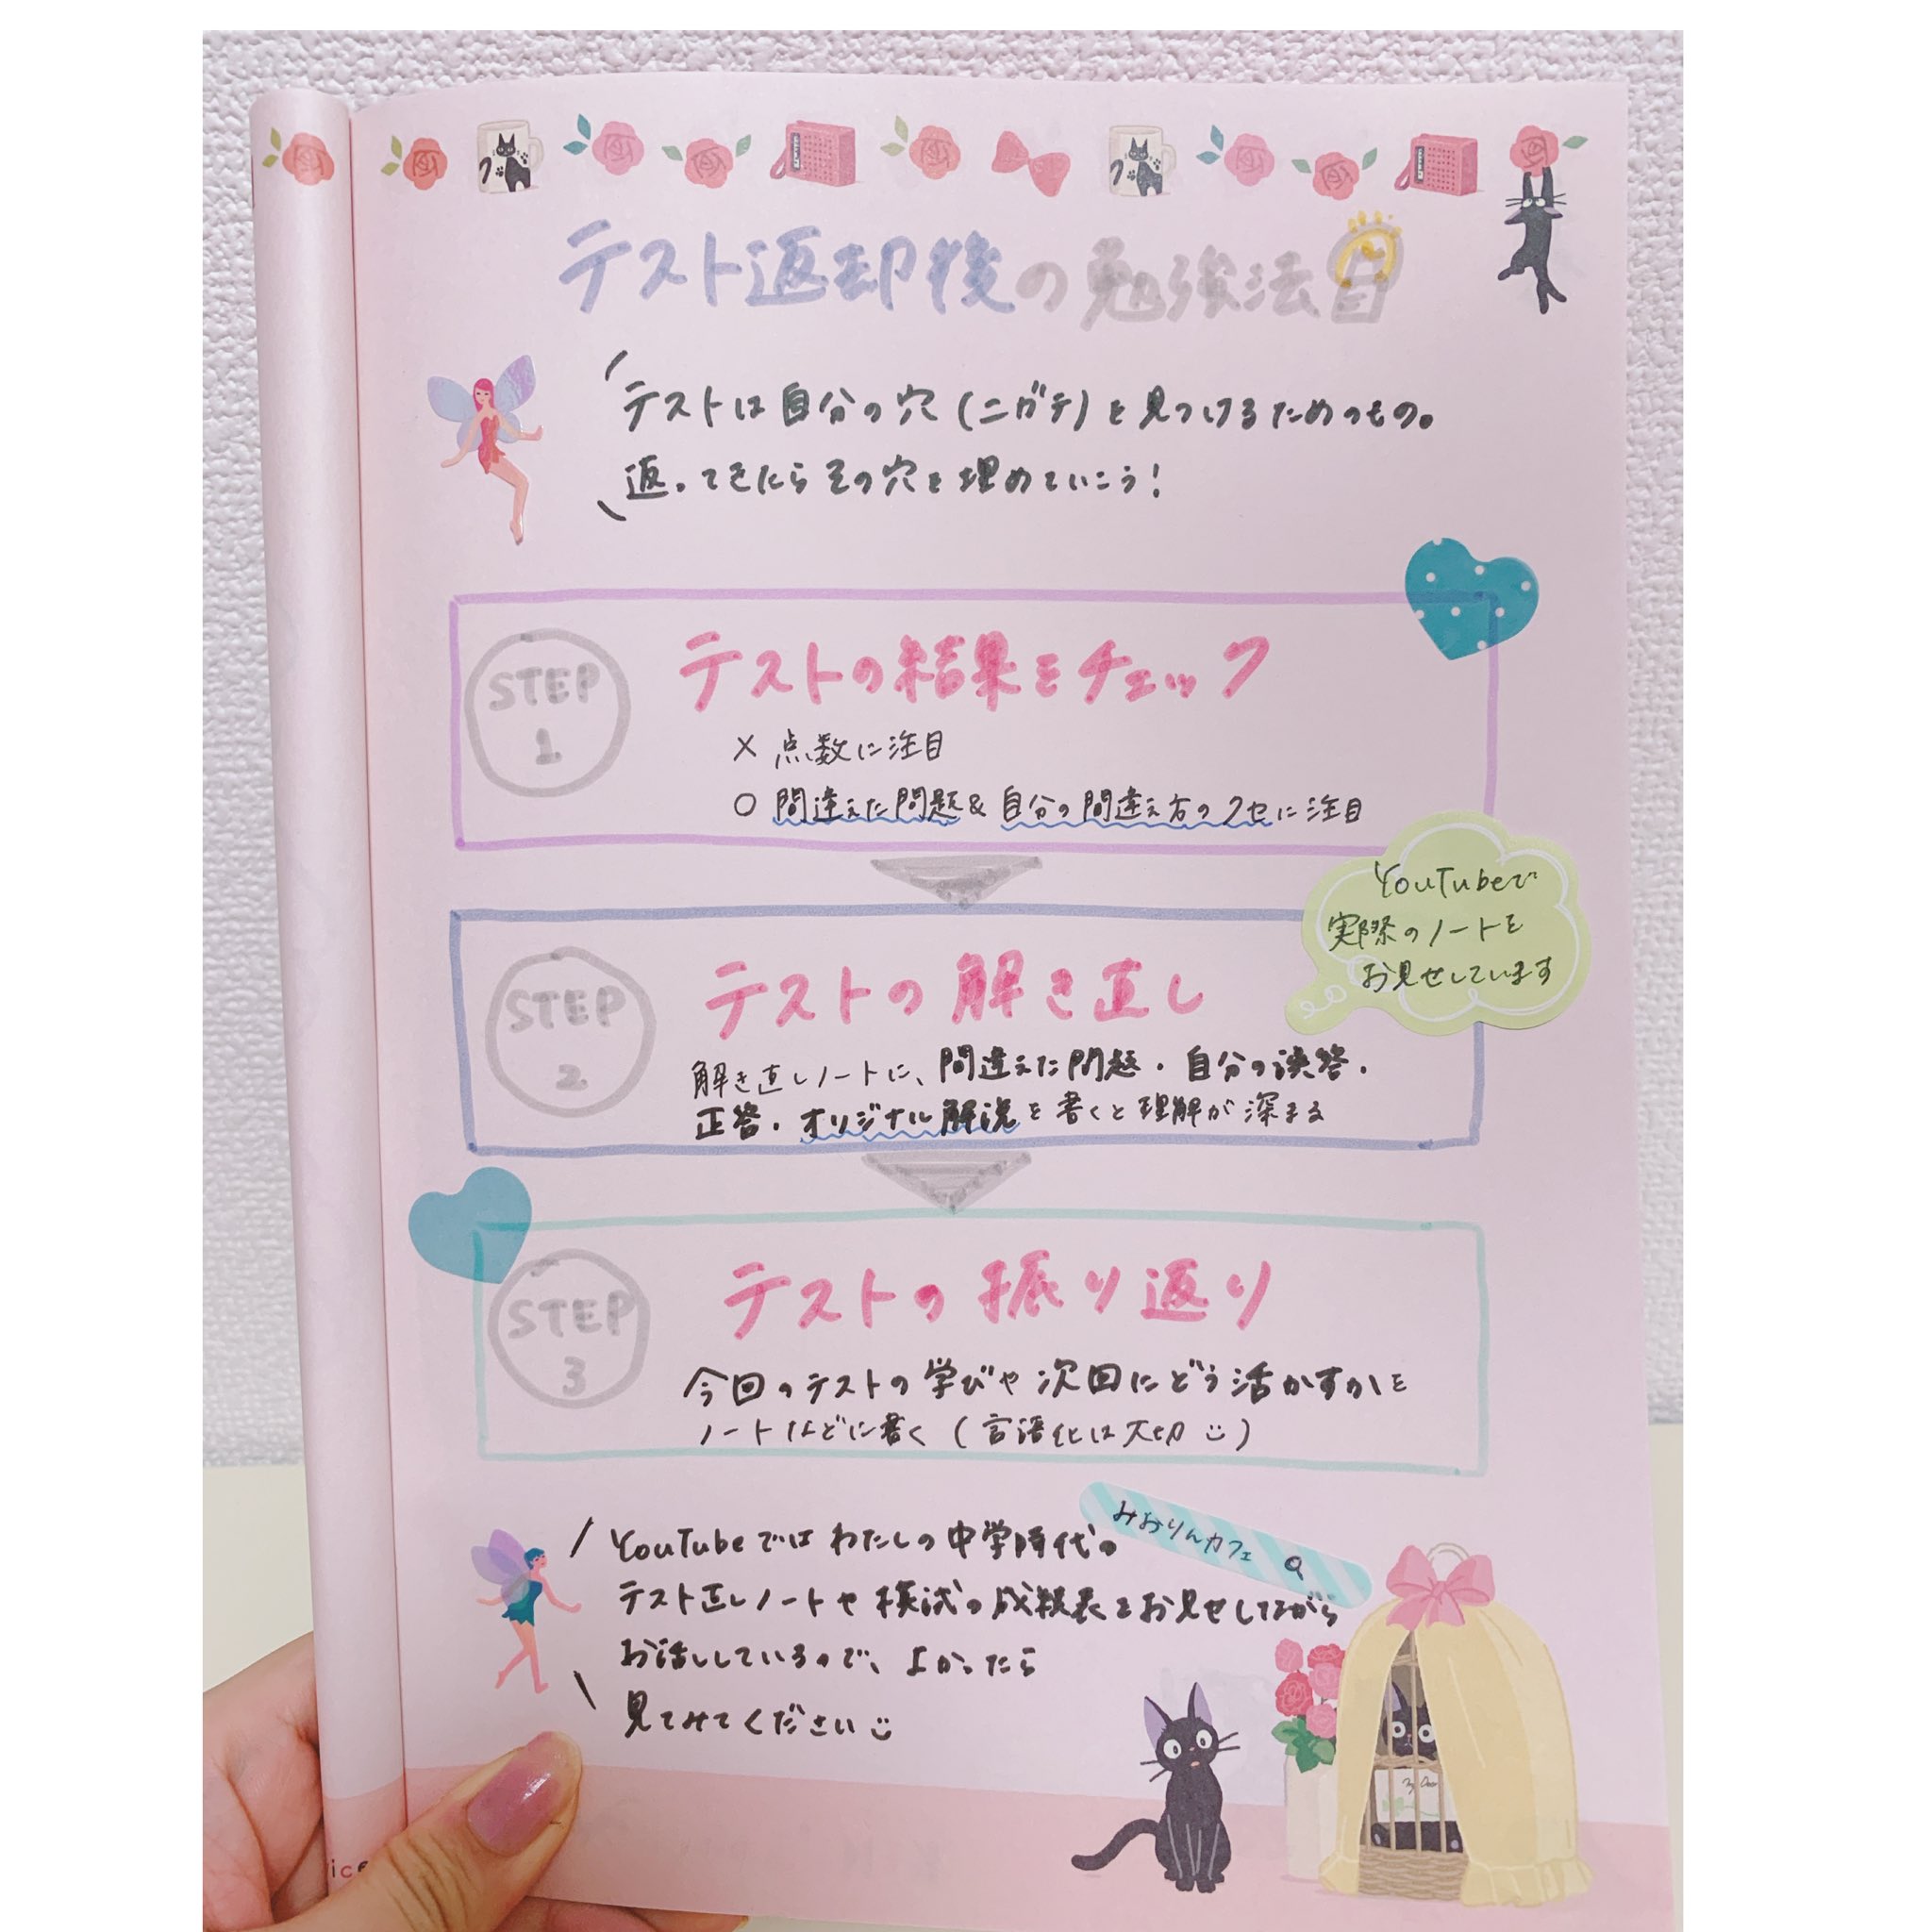 テスト返却後の勉強法
テストは自分の穴(ニガテ)を見つけるためのもの。
返ってきたらその穴を埋めていこう!
STEP
1
テストの結果をチェック
× 点数に注目
○ 間違えた問題&自分の間違え方のクセに注目
YouTubeで
実際のノートを
お見せしています
STEP
2
テストの解き直し
解き直しノートに、間違えた問題・自分の誤答・
正答・オリジナル解説を書くと理解が深まる
STEP
3
テストの振り返り
今回のテストの学びや次回にどう活かすかを
ノートなどに書く(言語化は大切)
みおりんカフェ
YouTubeではわたしの中学時代の
テスト直しノートや模試の成績表をお見せしながら
お話ししているので、よかったら
見てみてください